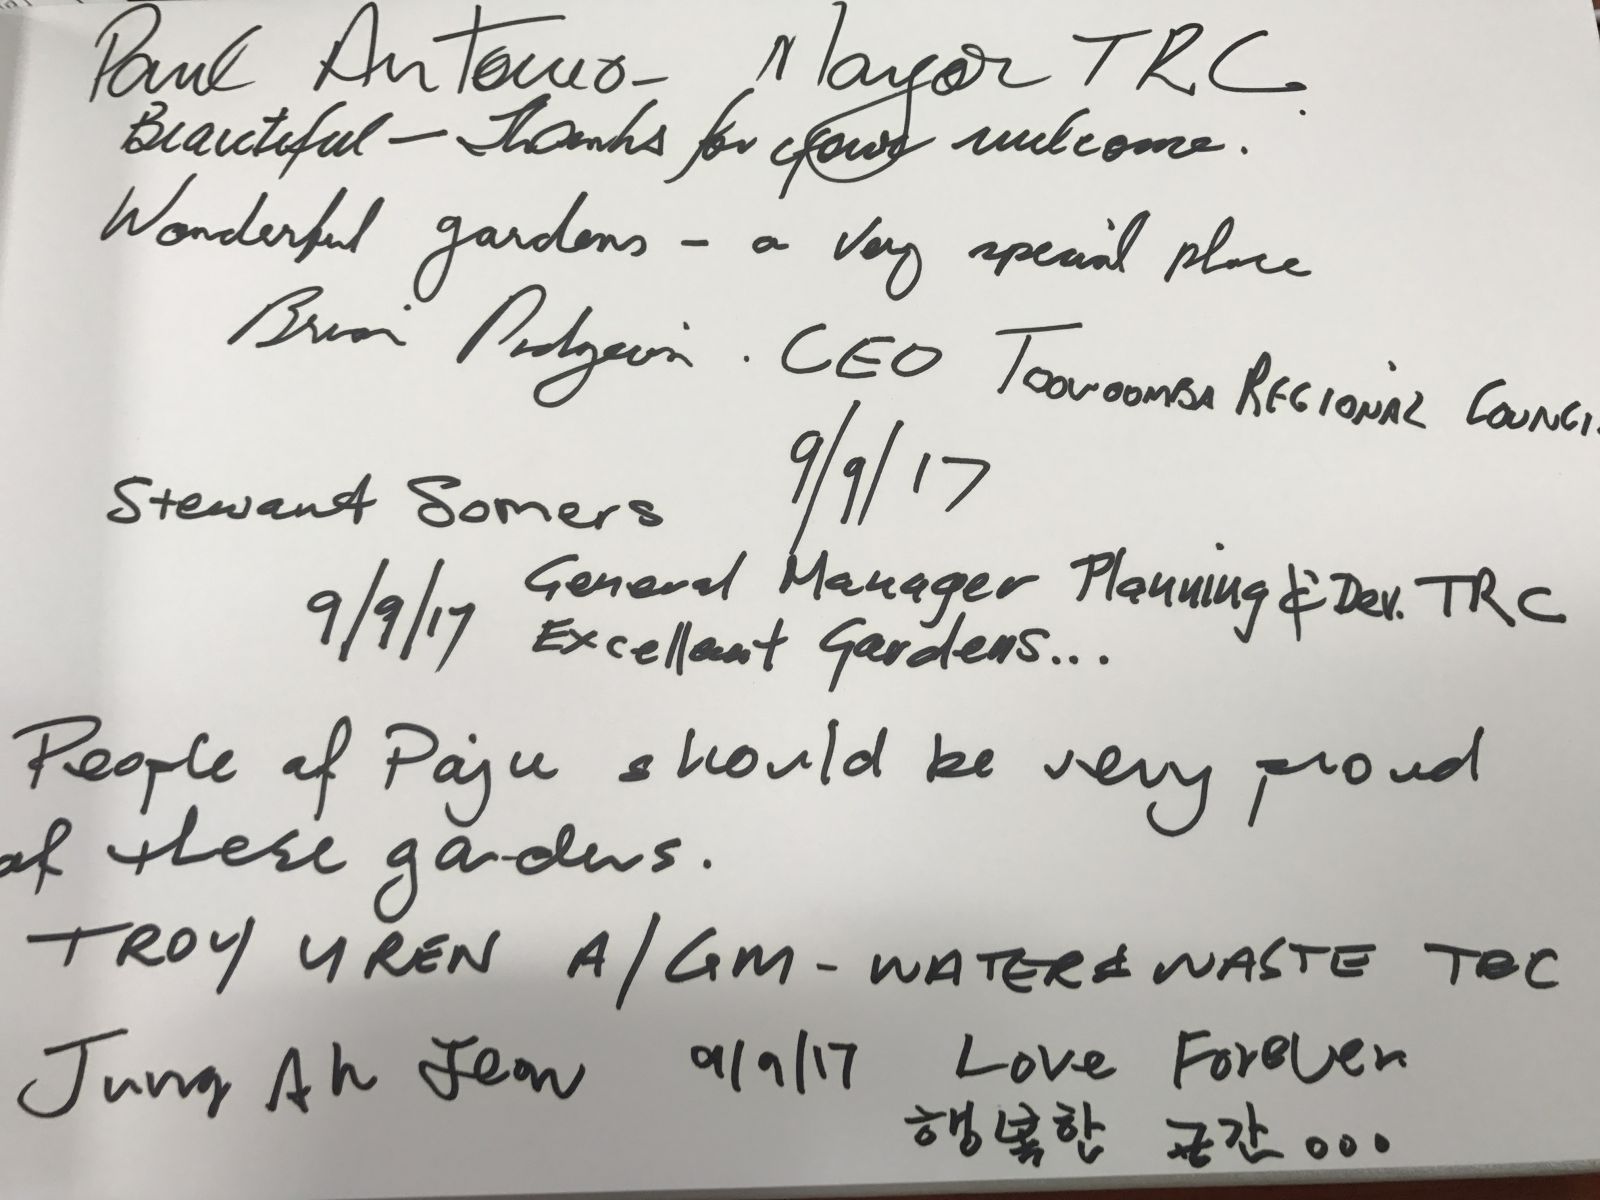 Paul Antonio - Mayor TRC.
Beautiful - Thanks for your welcome.
Wonderful gardens - a very special place
Brian Pidgeon. CEO TOOWOOMBA REGIONAL COUNCIL
9/9/17
Stewart Somers
9/9/17 General Manager Planning & Dev. TRC
Excellent Gardens...
People of Paju should be very proud
of these gardens.
TROY UREN A/GM - WATER & WASTE TRC
Jung Ah Jeon 9/9/17 Love Forever
행복한 공간...